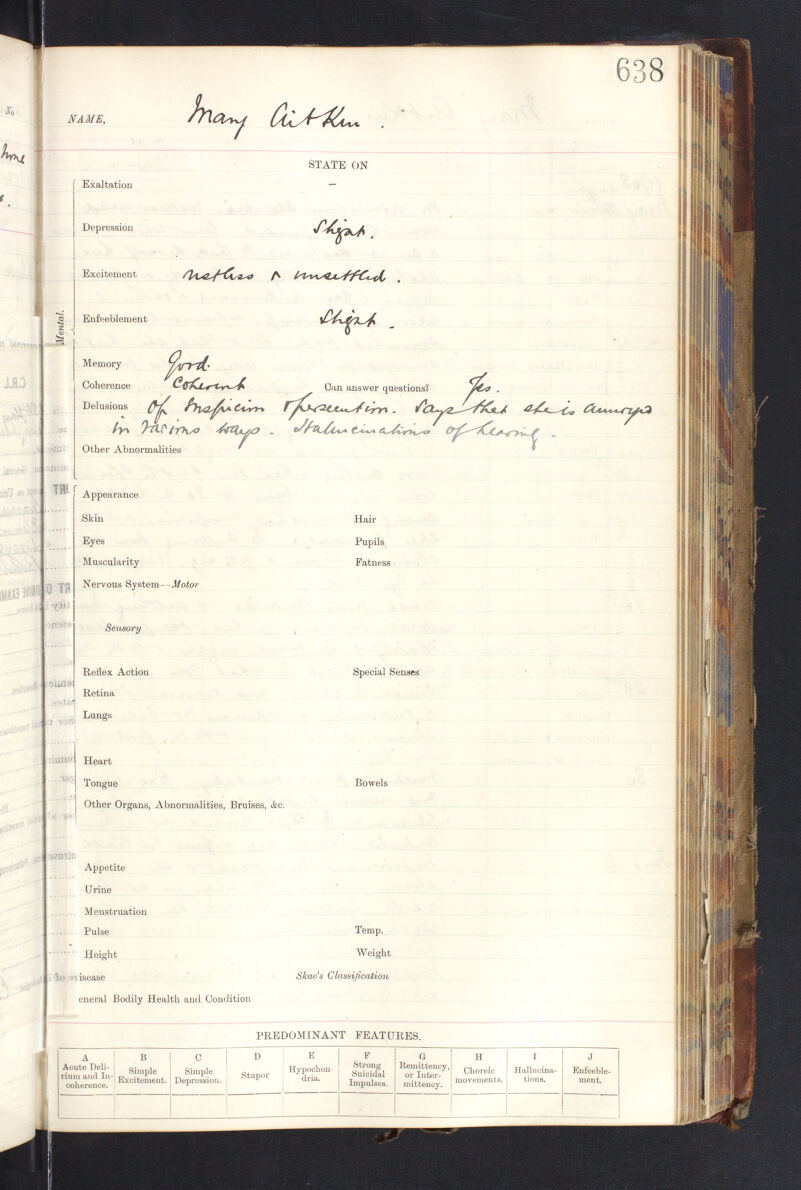 638
NAME, Mary Aitken.
STATE ON
Mental.
Exaltation –
Depression Slight.
Excitement restless & unsettled.
Enfeeblement Slight.
Memory Good.
Coherence Coherent Can answer questions? Yes.
Delusions Of suspicion & persecution. Says that she is annoyed
in various ways. Hallucinations of hearing.
Other Abnormalities
Appearance
Skin Hair
Eyes Pupils
Muscularity Fatness
Nervous System—Motor
Sensory
Reflex Action Special Senses
Retina
Lungs
Heart
Tongue Bowels
Other Organs, Abnormalities, Bruises, &c.
Appetite
Urine
Menstruation
Pulse Temp.
Height Weight
isease Skae's Classification
eneral Bodily Health and Condition
PREDOMINANT FEATURES.
A B C D E F G H I J
Acute Deli-
rium and In-
coherence.
Simple
Excitement.
Simple
Depression.
Stupor
Hypochon-
dria.
Strong
Suicidal
Impulses.
Remittency,
or Inter-
mittency.
Choreic
movements.
Hallucina-
tions.
Enfeeble-
ment.